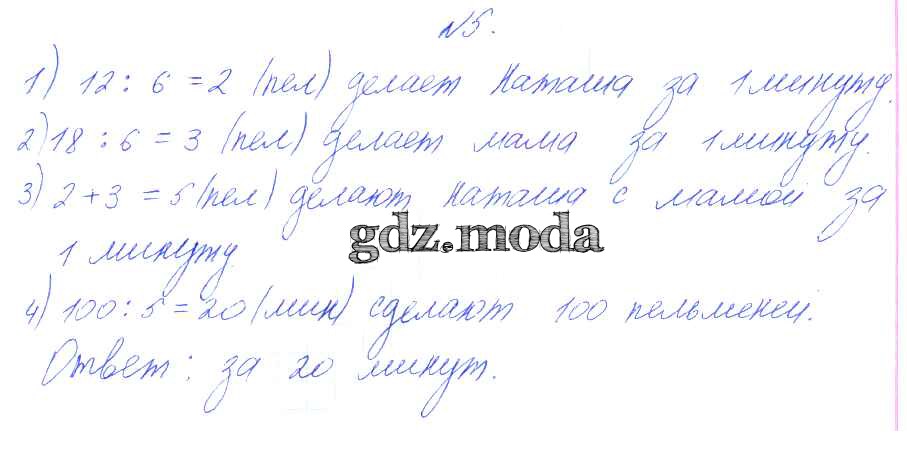 №5.
1) 12 : 6 = 2 (пел) делает Наташа за 1 минуту.
2) 18 : 6 = 3 (пел) делает мама за 1 минуту.
3) 2 + 3 = 5 (пел) делают Наташа с мамой за
1 минуту.
gdz.moda
4) 100 : 5 = 20 (мин) сделают 100 пельменей.
Ответ: за 20 минут.